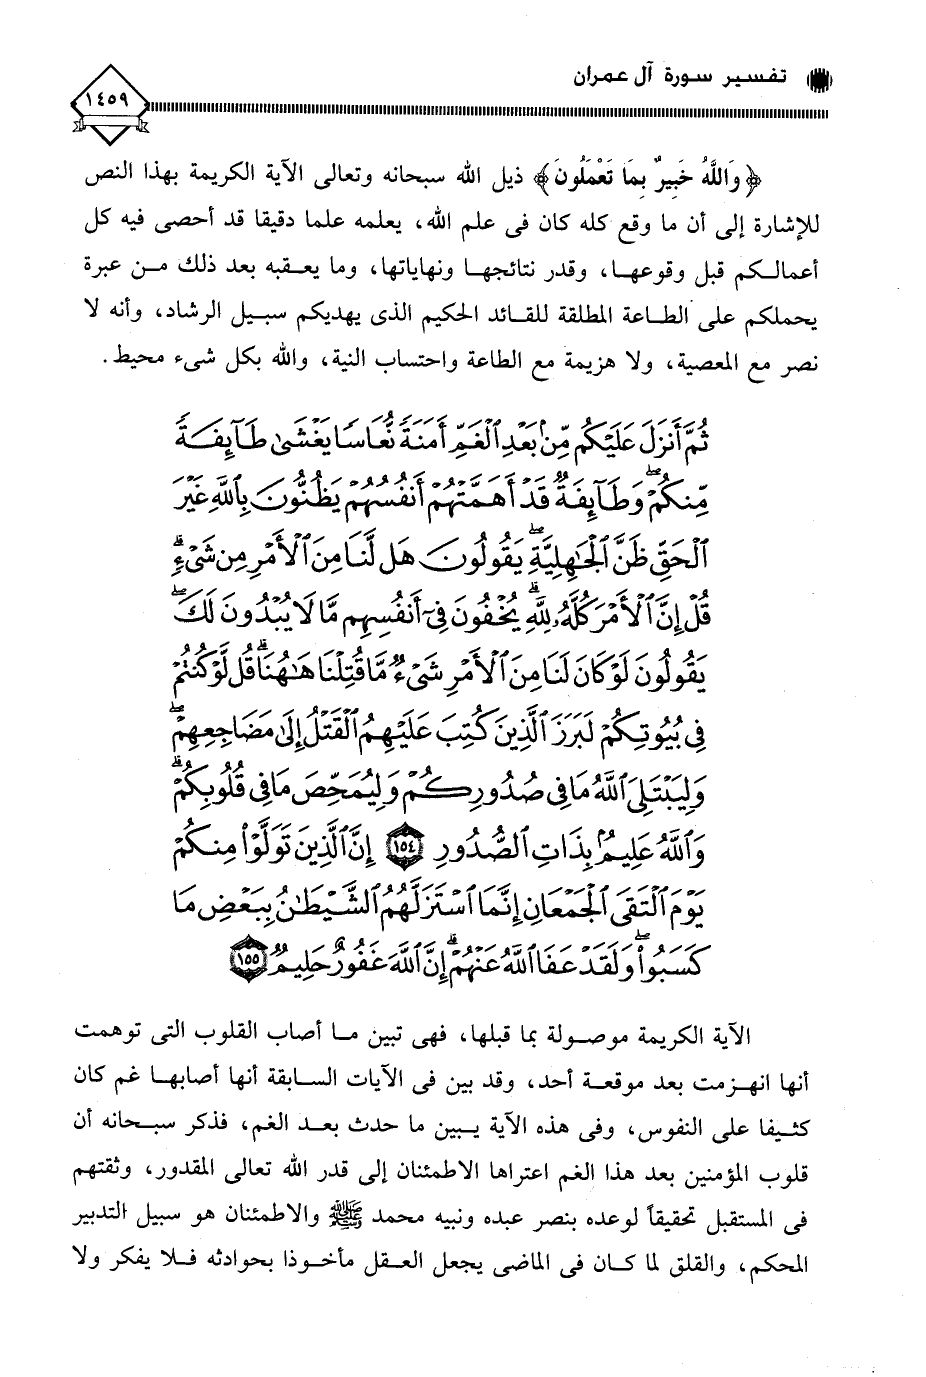 تفسير سورة آل عمران
١٤٥٩
﴿وَاللَّهُ خَبِيرٌ بِمَا تَعْمَلُونَ﴾ ذيل الله سبحانه وتعالى الآية الكريمة بهذا النص
للإشارة إلى أن ما وقع كله كان فى علم الله، يعلمه علما دقيقا قد أحصى فيه كل
أعمالكم قبل وقوعها، وقدر نتائجها ونهاياتها، وما يعقبه بعد ذلك من عبرة
يحملكم على الطاعة المطلقة للقائد الحكيم الذى يهديكم سبيل الرشاد، وأنه لا
نصر مع المعصية، ولا هزيمة مع الطاعة واحتساب النية، والله بكل شىء محيط.
ثُمَّ أَنزَلَ عَلَيْكُم مِّنۢ بَعْدِ ٱلْغَمِّ أَمَنَةً نُّعَاسًا يَغْشَىٰ طَآئِفَةً
مِّنكُمْ ۖ وَطَآئِفَةٌ قَدْ أَهَمَّتْهُمْ أَنفُسُهُمْ يَظُنُّونَ بِٱللَّهِ غَيْرَ
ٱلْحَقِّ ظَنَّ ٱلْجَـٰهِلِيَّةِ ۖ يَقُولُونَ هَل لَّنَا مِنَ ٱلْأَمْرِ مِن شَىْءٍ ۗ
قُلْ إِنَّ ٱلْأَمْرَ كُلَّهُۥ لِلَّهِ ۗ يُخْفُونَ فِىٓ أَنفُسِهِم مَّا لَا يُبْدُونَ لَكَ ۖ
يَقُولُونَ لَوْ كَانَ لَنَا مِنَ ٱلْأَمْرِ شَىْءٌ مَّا قُتِلْنَا هَـٰهُنَا ۗ قُل لَّوْ كُنتُمْ
فِى بُيُوتِكُمْ لَبَرَزَ ٱلَّذِينَ كُتِبَ عَلَيْهِمُ ٱلْقَتْلُ إِلَىٰ مَضَاجِعِهِمْ ۖ
وَلِيَبْتَلِىَ ٱللَّهُ مَا فِى صُدُورِكُمْ وَلِيُمَحِّصَ مَا فِى قُلُوبِكُمْ ۗ
وَٱللَّهُ عَلِيمٌۢ بِذَاتِ ٱلصُّدُورِ ١٥٤ إِنَّ ٱلَّذِينَ تَوَلَّوْا۟ مِنكُمْ
يَوْمَ ٱلْتَقَى ٱلْجَمْعَانِ إِنَّمَا ٱسْتَزَلَّهُمُ ٱلشَّيْطَـٰنُ بِبَعْضِ مَا
كَسَبُوا۟ ۖ وَلَقَدْ عَفَا ٱللَّهُ عَنْهُمْ ۗ إِنَّ ٱللَّهَ غَفُورٌ حَلِيمٌ ١٥٥
الآية الكريمة موصولة بما قبلها، فهى تبين ما أصاب القلوب التى توهمت
أنها انهزمت بعد موقعة أحد، وقد بين فى الآيات السابقة أنها أصابها غم كان
كثيفا على النفوس، وفى هذه الآية يبين ما حدث بعد الغم، فذكر سبحانه أن
قلوب المؤمنين بعد هذا الغم اعتراها الاطمئنان إلى قدر الله تعالى المقدور، وثقتهم
فى المستقبل تحقيقاً لوعده بنصر عبده ونبيه محمد ﷺ والاطمئنان هو سبيل التدبير
المحكم، والقلق لما كان فى الماضى يجعل العقل مأخوذا بحوادثه فلا يفكر ولا